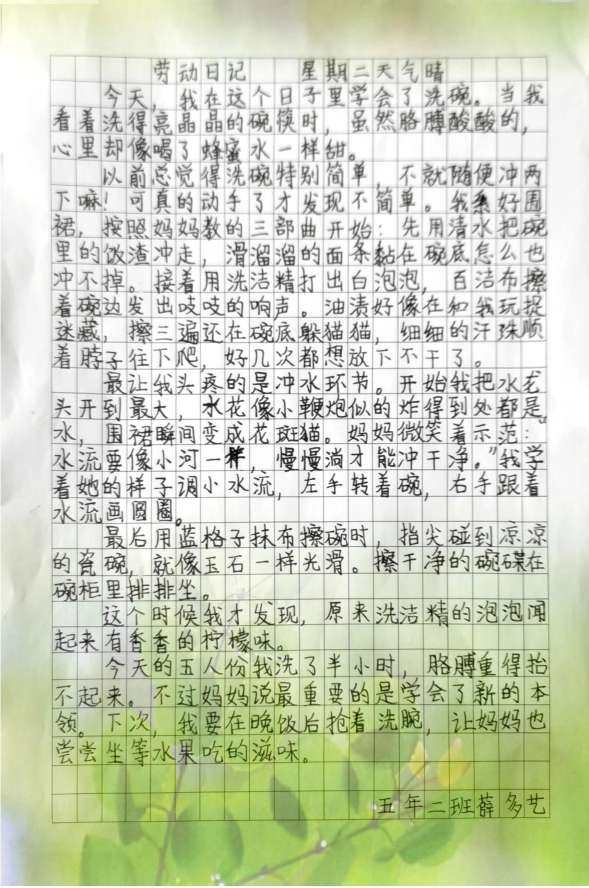 劳动日记 星期二天气晴
今天，我在这个日子里学会了洗碗。当我
看着洗得亮晶晶的碗筷时，虽然胳膊酸酸的，
心里却像喝了蜂蜜水一样甜。
以前总觉得洗碗特别简单，不就随便冲两
下嘛！可真的动手了才发现不简单。我系好围
裙，按照妈妈教的三部曲开始：先用清水把碗
里的饭渣冲走，滑溜溜的面条黏在碗底怎么也
冲不掉。接着用洗洁精打出白泡泡，百洁布擦
着碗边发出吱吱的响声。油渍好像在和我玩捉
迷藏，擦三遍还在碗底躲猫猫，细细的汗珠顺
着脖子往下爬，好几次都想放下不干了。
最让我头疼的是冲水环节。开始我把水龙
头开到最大，水花像小鞭炮似的炸得到处都是
水，围裙瞬间变成花斑猫。妈妈微笑着示范：“
水流要像小河一样，慢慢淌才能冲干净。”我学
着她的样子调小水流，左手转着碗，右手跟着
水流画圆圈。
最后用蓝格子抹布擦碗时，指尖碰到凉凉
的瓷碗，就像玉石一样光滑。擦干净的碗碟在
碗柜里排排坐。
这个时候我才发现，原来洗洁精的泡泡闻
起来有香香的柠檬味。
今天的五人份我洗了半小时，胳膊重得抬
不起来。不过妈妈说最重要的是学会了新的本
领。下次，我要在晚饭后抢着洗腕，让妈妈也
尝尝坐等水果吃的滋味。
五年二班薛多艺